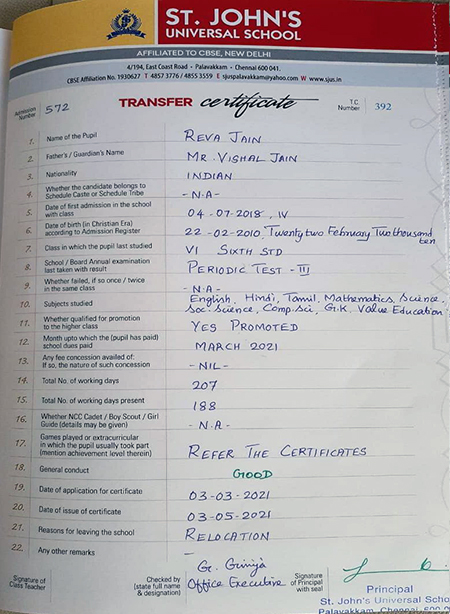 ST. JOHN'S
UNIVERSAL SCHOOL
AFFILIATED TO CBSE, NEW DELHI
4/194, East Coast Road • Palavakkam • Chennai 600 041.
CBSE Affiliation No. 1930627 T 4857 3776 / 4855 3559 E sjuspalavakkam@yahoo.com W www.sjus.in
Admission Number 572 TRANSFER certificate T.C. Number 392
1. Name of the Pupil REVA JAIN
2. Father's / Guardian's Name MR. VISHAL JAIN
3. Nationality INDIAN
4. Whether the candidate belongs to
Schedule Caste or Schedule Tribe -N.A-
5. Date of first admission in the school
with class 04-07-2018, IV
6. Date of birth (in Christian Era)
according to Admission Register 22-02-2010, Twenty two February Two thousand
ten
7. Class in which the pupil last studied VI SIXTH STD
8. School / Board Annual examination
last taken with result PERIODIC TEST - III
9. Whether failed, if so once / twice
in the same class -N.A-
10. Subjects studied English, Hindi, Tamil, Mathematics, Science,
Soc. Science, Comp. Sci, G.K. Value Education
11. Whether qualified for promotion
to the higher class YES PROMOTED
12. Month upto which the (pupil has paid)
school dues paid MARCH 2021
13. Any fee concession availed of:
If so, the nature of such concession -NIL-
14. Total No. of working days 207
15. Total No. of working days present 188
16. Whether NCC Cadet / Boy Scout / Girl
Guide (details may be given) -N.A-
17. Games played or extracurricular
in which the pupil usually took part
(mention achievement level therein) REFER THE CERTIFICATES
18. General conduct GOOD
19. Date of application for certificate 03-03-2021
20. Date of issue of certificate 03-05-2021
21. Reasons for leaving the school RELOCATION
22. Any other remarks –
Signature of
Class Teacher
Checked by
(state full name
& designation)
G. Girija
Office Executive
Signature
of Principal
with seal
Principal
St. John's Universal Scho
Palavakkam, Chennai-600 0